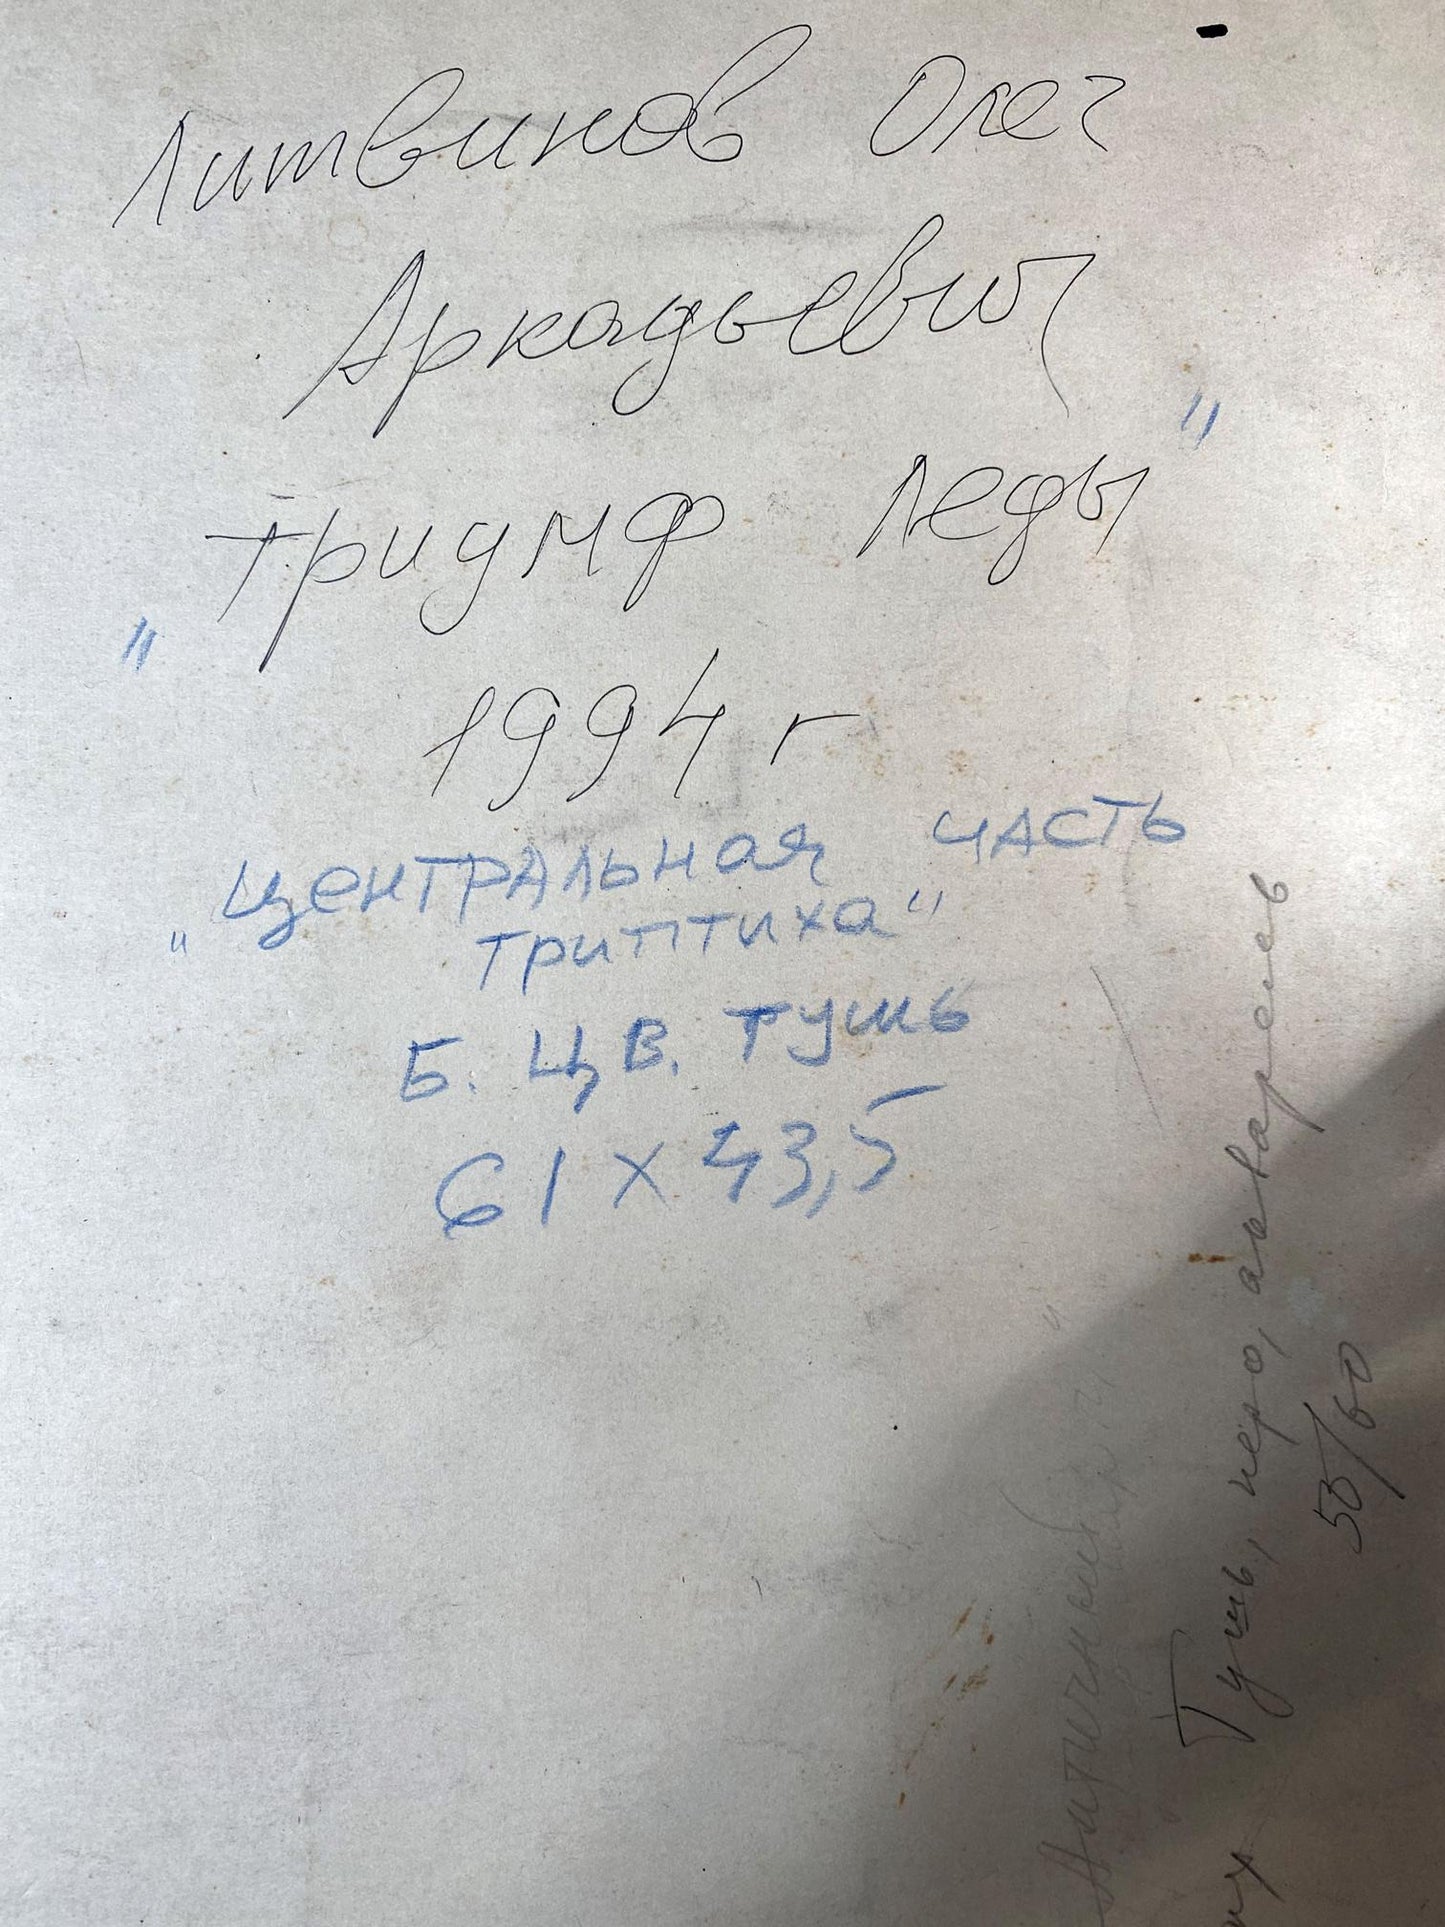 Литвинов Олег
Аркадьевич
"Триумф Леды"
1994 г
"Центральная часть
триптиха"
Б. ЦВ. ТУШЬ
61 х 43,5
Тушь, перо, акварель
50/60